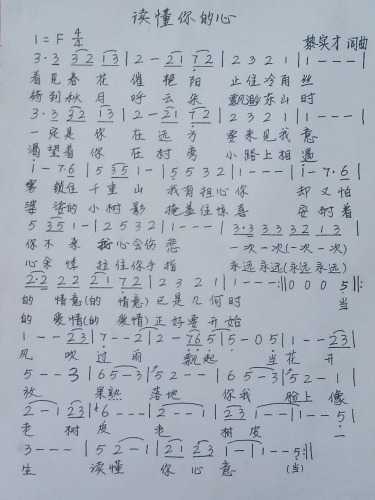 读懂你的心
1=F 4/4 黎实才 词曲
3·3 32 13 | 2 - 21 72 | 2 3 2 1 | 1 - - - |
看见春花 催艳阳 止住冷月丝
待到秋月 呼云朵 飘渺东山时
3·3 32 13 | 2 - 21 72 | 2 3 2 1 | 1 - - - |
一定是你 在远方 要来见我意
渴望着你 在村旁 小路上相遇
1 - 7·6 | 5 35 1 - | 5 5 2 3 2 | 1 - - - | 1 - 7·6 |
雾锁住千重山 我有担心你 却又怕
婆娑的小树影 掩盖住惊喜
5 35 1 - | 2 5 3 2 | 1 - - - | 3·3 33 32 13 |
你不来 我心会伤悲 一次一次(一次一次)
心余悸 拉住你手指 永远永远(永远永远)
2·2 22 21 72 | 2 3 2 1 | 1 - - - :|| 0 0 0 5 |
的情意(的情意)已是几何时 当
的爱情(的爱情)正好要开始
1 - - 23 | 7 - - 2 | 2 - 765 | 5 - 05 | 1 - - 23 |
风吹过雨飘起 当花开
5 - - 3 | 65 - 3 | 52 - - | 65 - 3 | 52 - 1 |
放 果熟落地 你我脸上像
2 - 1 23 | 6 - - - | 2 - - 1 | 23 1 - - | 1 - - 5 |
老树皮 老树皮 一
3 - - - | 5 2 - 1 | 21 23 1 - | 1 - - 5 :||
生 读懂你心意 (当)